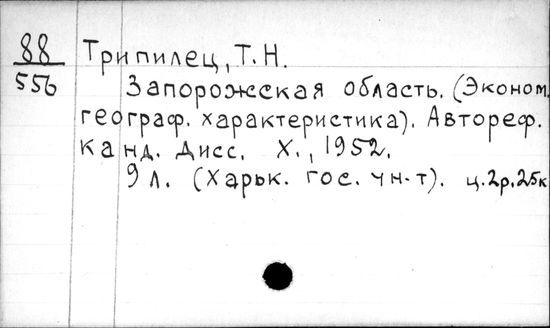 88 Трипилец, Т.Н.
556 Запорожская область. (Эконом.
географ. характеристика). Автореф.
канд. дисс. Х., 1952.
9 л. (Харьк. гос. ун-т). ц.2р.25к